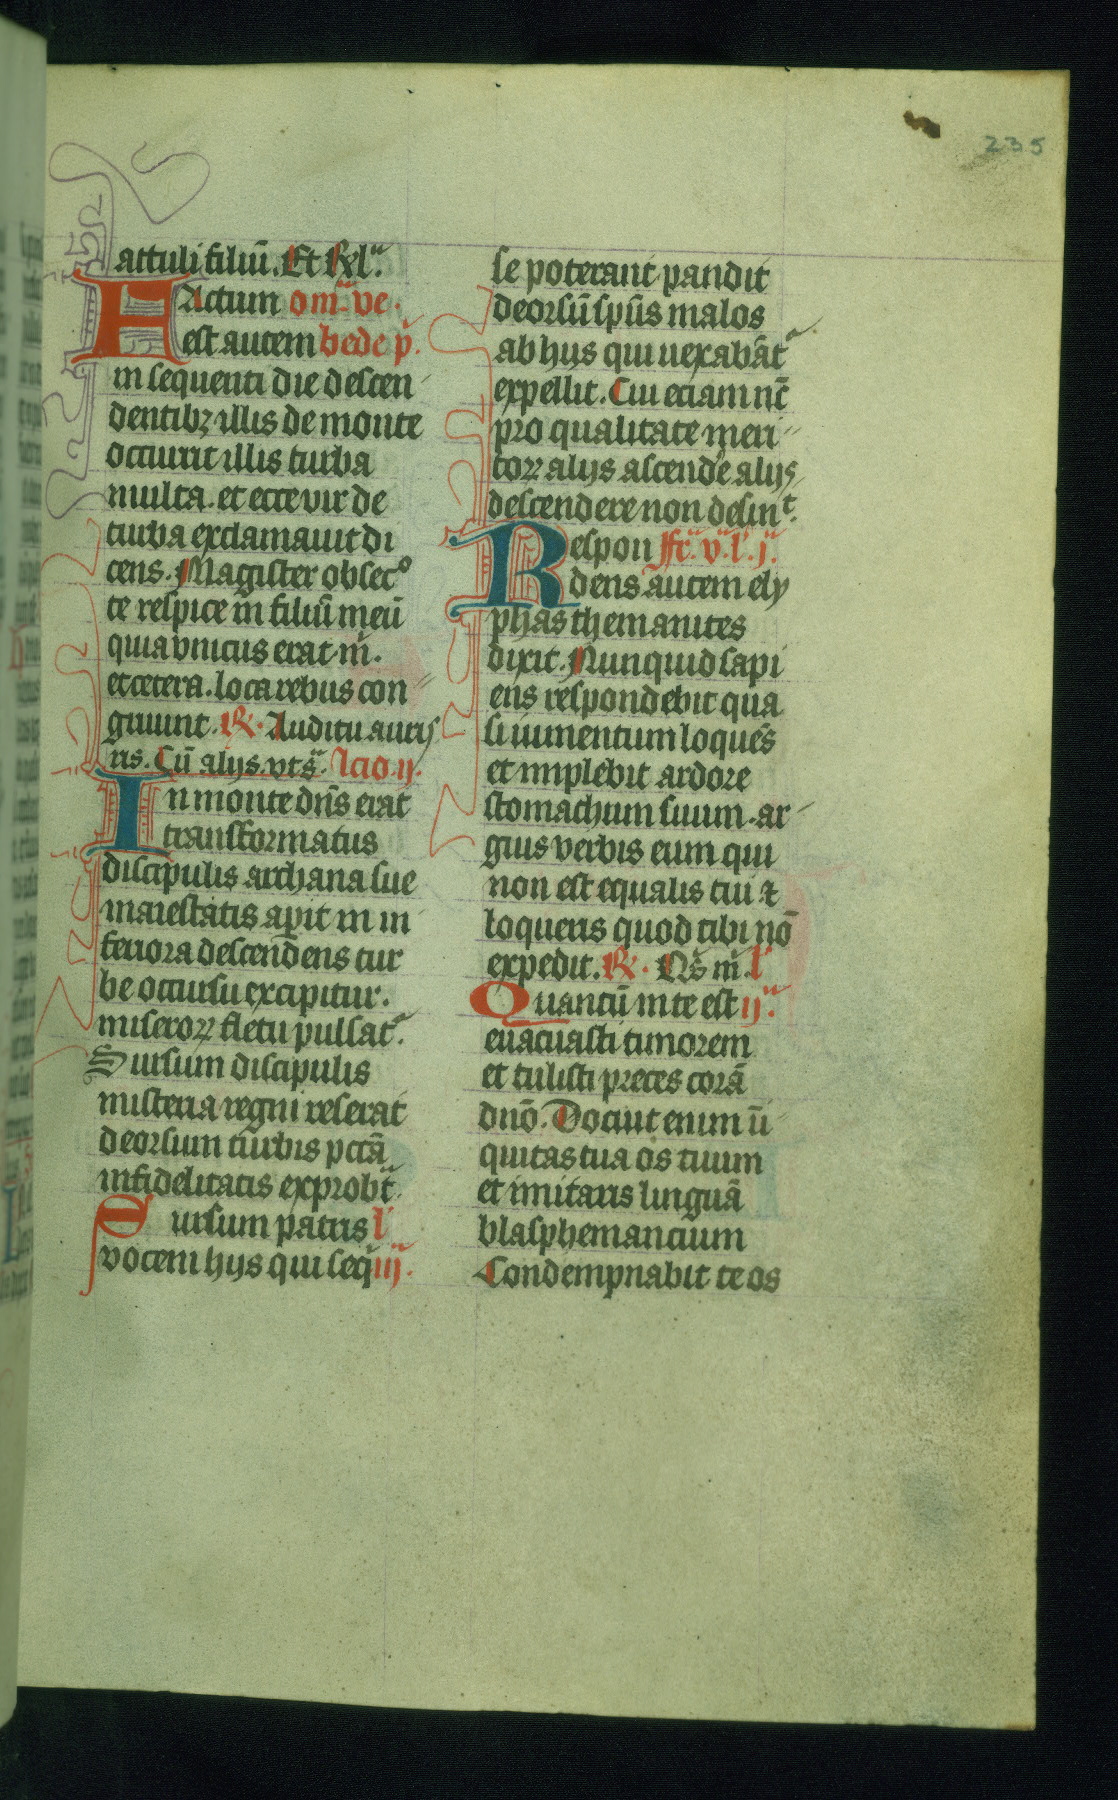 235
attuli filiū. Et sxl̄a.
FActum om̄. ve.
est autem bede p̄.
in sequenti die descen
dentibꝫ illis de monte
occurrit illis turba
multa. et ecce vir de
turba exclamauit di
cens. Magister obseco
te respice in filiū meū
quia vnicus erat m̄.
et cetera. loca rebus con
gruunt. R. Auditu auris
ris. Cū alijs. vt sa. lcio.ij.
In monte dn̄s erat
transformatus
discipulis archana sue
maiestatis apit in in
feriora descendens tur
be occursu excipitur.
miseroꝝ fletu pulsata.
Sursum discipulis
misteria regni reserat
deorsum turbis pctā
infidelitatis exprobt̄
Sursum patris l
vocem hijs qui seq̄ iij.
se poterant pandit
deorsū spūs malos
ab hijs qui uexabāta
expellit. Cui eciam nc̄
pro qualitate meri
toꝝ alijs ascende alijs
descendere non desint.
Respon fr̄. v. l. j.
dens autem ely
phas themanites
dixit. Nunquid sapi
ens respondebit qua
si iumentum loques
et implebit ardore
stomachum suum. ar
guis verbis eum qui
non est equalis tui ⁊
loqueris quod tibi nō
expedit. R. Ns̄ m̄. l
Quantū in te est ij.
euacuasti timorem
et tulisti preces corā
dn̄o. Docuit enim ūi
quitas tua os tuum
et imitaris linguā
blasphemancium
Condempnabit te os